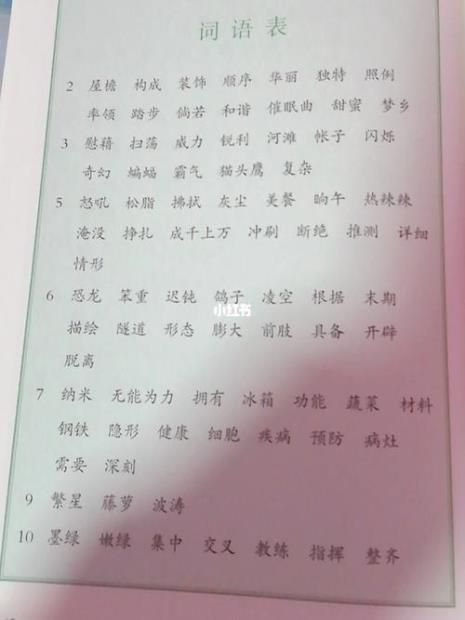 词语表
2 屋檐 构成 装饰 顺序 华丽 独特 照例
率领 踏步 倘若 和谐 催眠曲 甜蜜 梦乡
3 慰藉 扫荡 威力 锐利 河滩 帐子 闪烁
奇幻 蝙蝠 霸气 猫头鹰 复杂
5 怒吼 松脂 拂拭 灰尘 美餐 晌午 热辣辣
淹没 挣扎 成千上万 冲刷 断绝 推测 详细
情形
6 恐龙 笨重 迟钝 鸽子 凌空 根据 末期
描绘 隧道 形态 膨大 前肢 具备 开辟
脱离
小红书
7 纳米 无能为力 拥有 冰箱 功能 蔬菜 材料
钢铁 隐形 健康 细胞 疾病 预防 病灶
需要 深刻
9 繁星 藤萝 波涛
10 墨绿 嫩绿 集中 交叉 教练 指挥 整齐